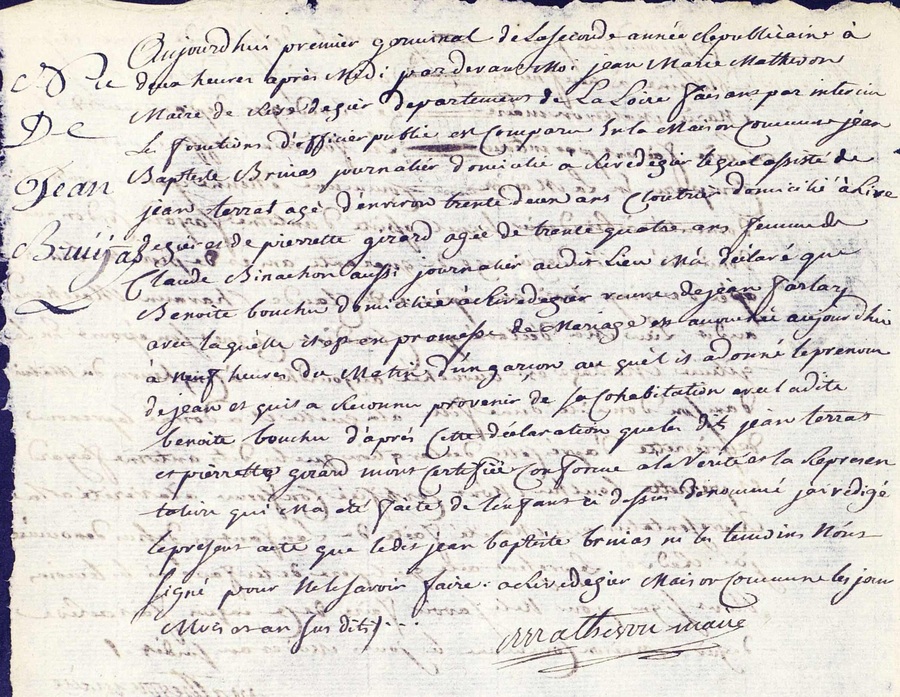 Né
De
Jean
Bruÿas
Aujourdhui premier germinal de la seconde année Républicaine à
deux heures après Midi pardevant Moi jean Marie Matheron
Maire de Rive degier departement de La Loire faisant par interim
Les fonctions d'officier public est Comparu En la Maison Commune jéan
Baptiste Bruias journalier domicilié a Rivedegier lequel assisté de
jean terras agé d'environ trente deux ans Cloutrier domicilié à Rive
degier et de pierrette girard agée de trante quatre ans femme de
Claude Binachon aussi journalier audit Lieu M'a déclaré que
Benoite bouchu domiciliée à Rivedegier veuve de jean farlay
avec laquelle il est en promesse de Mariage est accouchée aujourdhui
à neuf heures du Matin d'un garson au quel il a donné le prenom
de jean et qu'il a Reconnu provenir de sa Cohabitation avec ladite
benoite bouchu d'après Cette déclaration que les dit jean terras
et pierrette girard mont Certifiée Conforme a la Vérité et la Represen
tation qui M'a été faite de l'enfant ci dessus denommé jai rédigé
le présent acte que ledit jean baptiste bruias ni les temoins N'ont
signé pour Ne le savoir faire. a Rivedegier Maison Commune les jour
Mois et an sus dits)...
Matheron maire